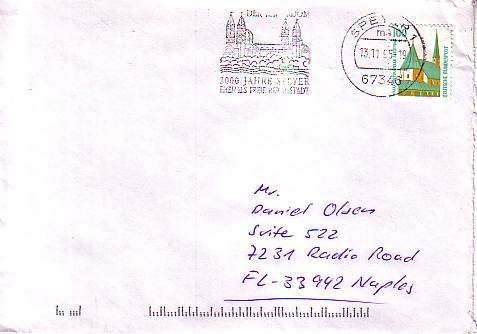 DER KAISERDOM
2000 JAHRE SPEYER
EHEMALS FREIE REICHSSTADT
SPEYER 1
13.11.95-19
67346
100
DEUTSCHE BUNDESPOST
Mr.
Daniel Olsen
Suite 522
7231 Radio Road
FL-33942 Naples